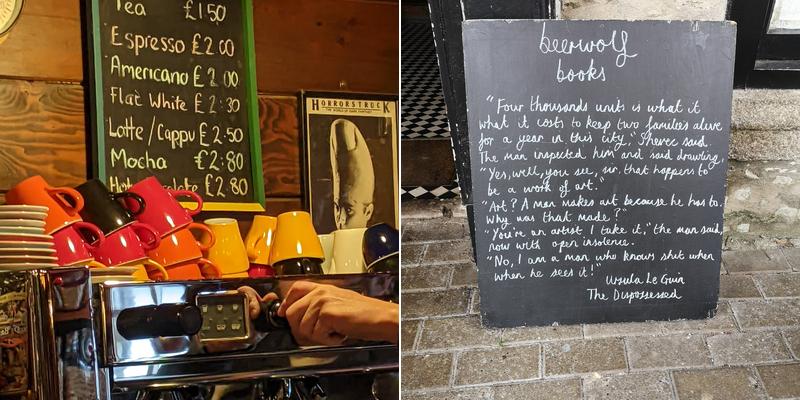 Tea £1.50
Espresso £2.00
Americano £2.00
Flat White £2.30
Latte/Cappu £2.50
Mocha £2.80
Hot Chocolate £2.80
HORRORSTRUCK
beerwolf
books
"Four thousands units is what it
what it costs to keep two families alive
for a year in this city," Shevec said.
The man inspected him and said drawling,
"Yes, well, you see, sir, that happens to
be a work of art."
"Art? A man makes art because he has to.
Why was that made?"
"You're an artist, I take it," the man said,
now with open insolence.
"No, I am a man who knows shit when
when he sees it!"
Ursula Le Guin
The Dispossessed